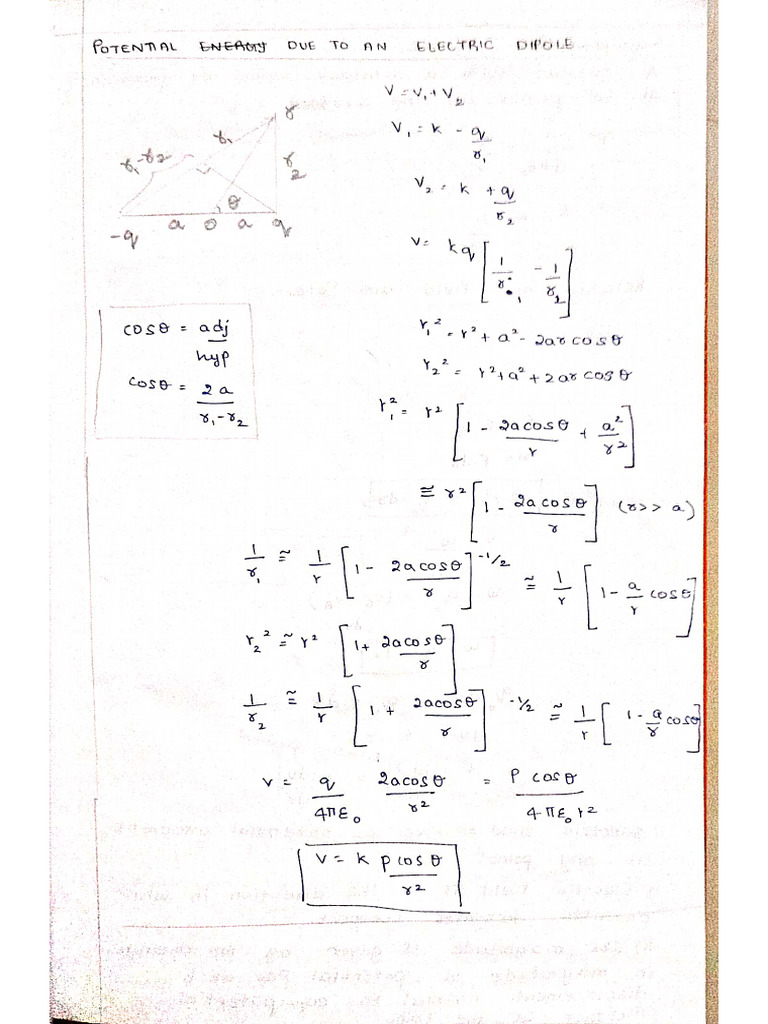 POTENTIAL ENERGY DUE TO AN ELECTRIC DIPOLE
V = V₁ + V₂
V₁ = k - q/r₁
V₂ = k + q/r₂
V = kq [1/r₁ - 1/r₂]
r
r₁
r₁-r₂
r₂
θ
-q a O a q
cosθ = adj/hyp
cosθ = 2a/r₁-r₂
r₁² = r² + a² - 2ar cosθ
r₂² = r² + a² + 2ar cosθ
r₁² = r² [1 - 2acosθ/r + a²/r²]
≅ r² [1 - 2acosθ/r] (r>> a)
1/r₁ ≅ 1/r [1 - 2acosθ/r]^-1/2 ≅ 1/r [1 - a/r cosθ]
r₂² ≅ r² [1 + 2acosθ/r]
1/r₂ ≅ 1/r [1 + 2acosθ/r]^-1/2 ≅ 1/r [1 - a/r cosθ]
V = q/4πε₀ 2acosθ/r² = P cosθ/4πε₀r²
V = k pcosθ/r²